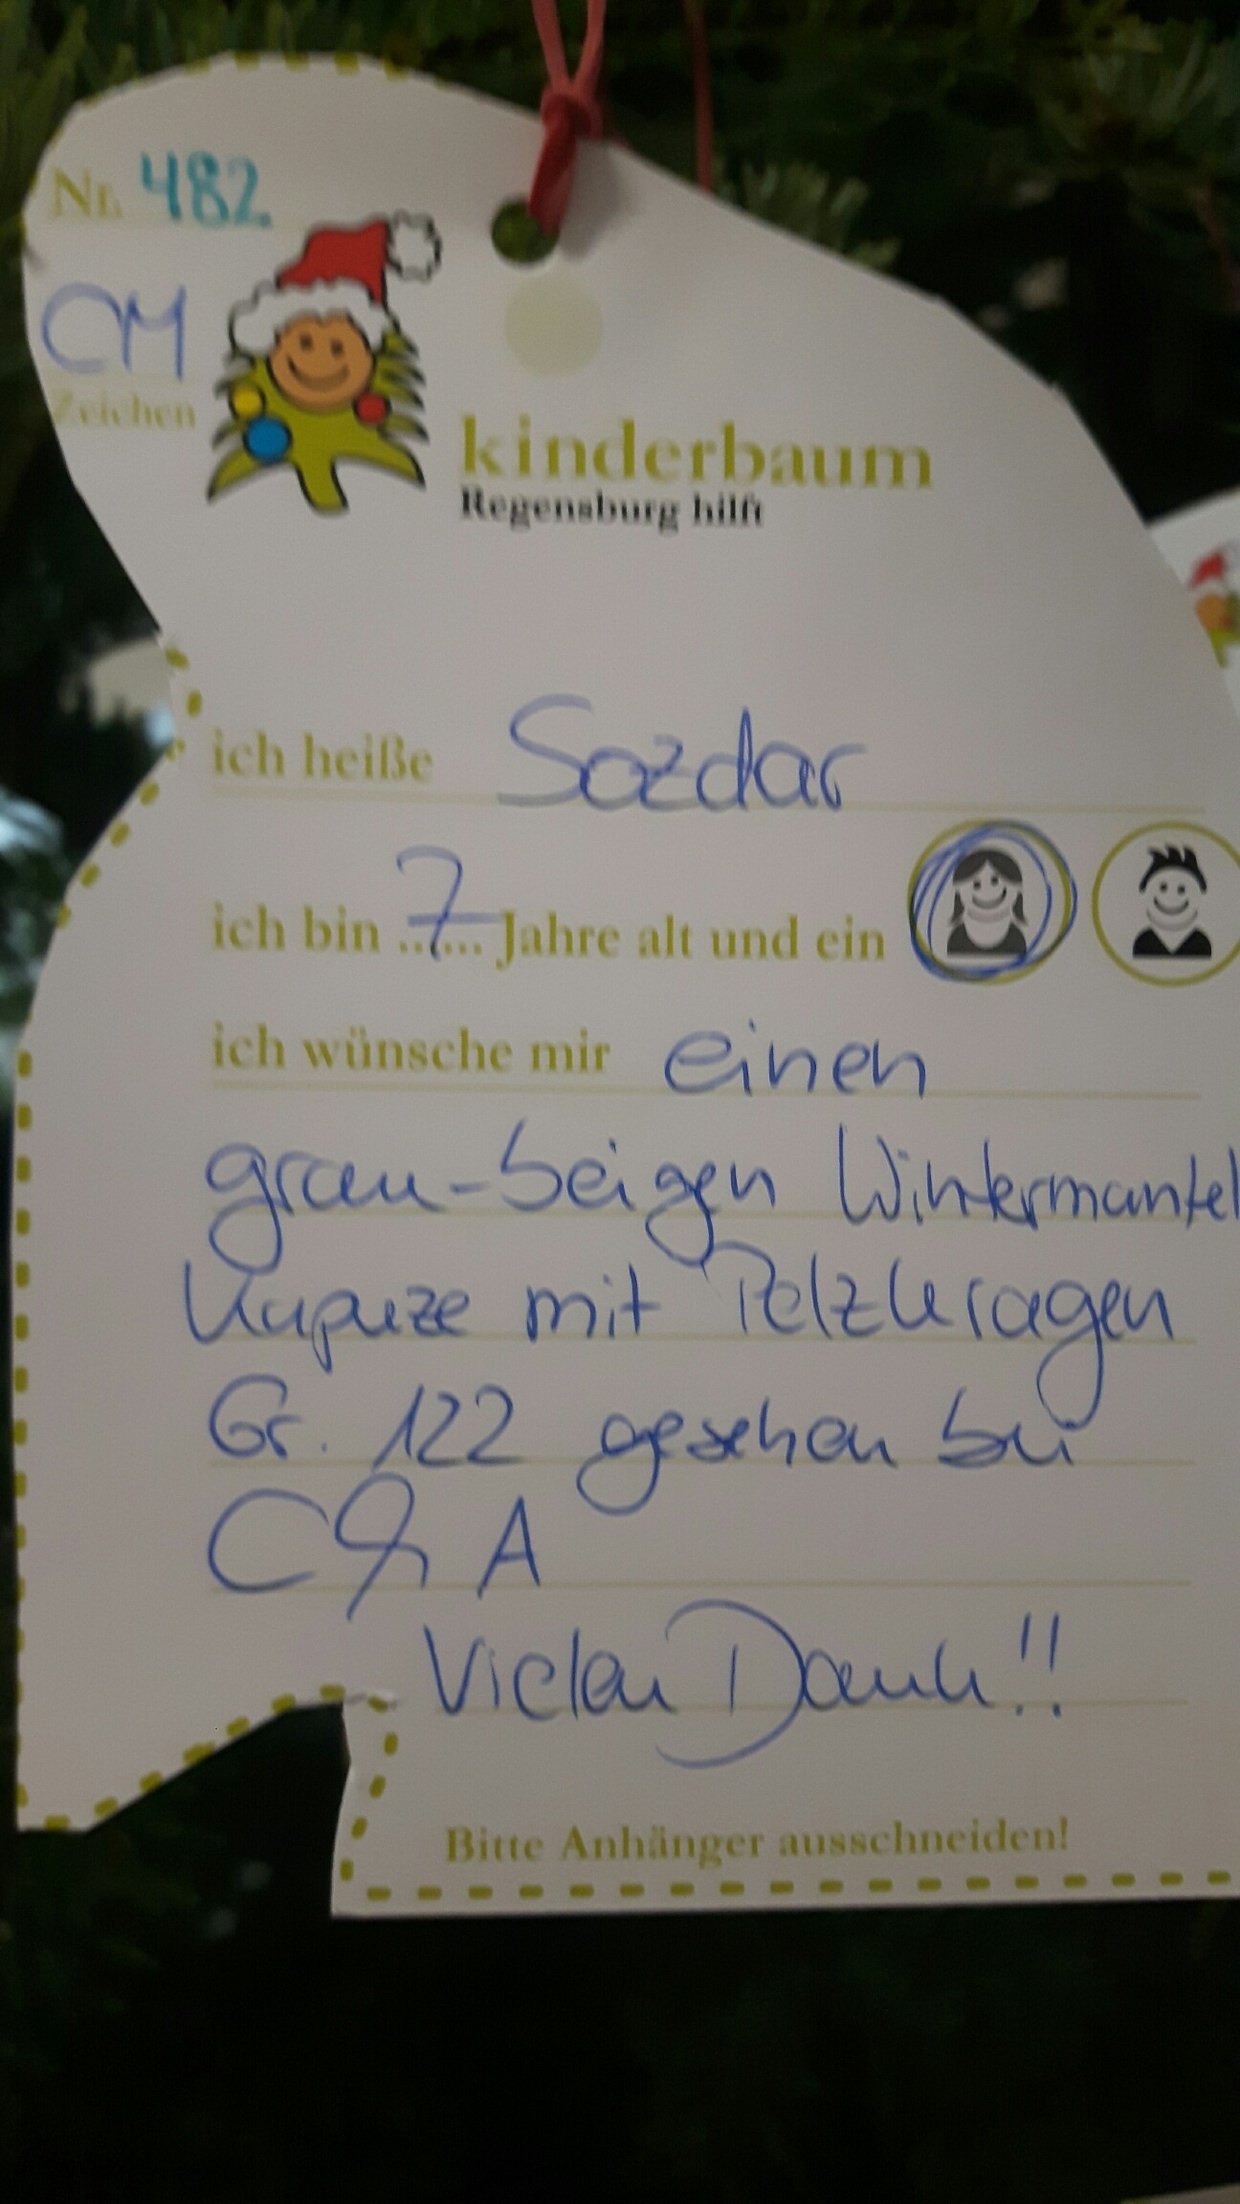 Nr. 482
CM
Zeichen
kinderbaum
Regensburg hilft
ich heiße Sozdar
ich bin ..7.. Jahre alt und ein
ich wünsche mir einen
grau-beigen Wintermantel
Kapuze mit Pelzkragen
Gr. 122 gesehen bei
C & A
Vielen Dank!!
Bitte Anhänger ausschneiden!